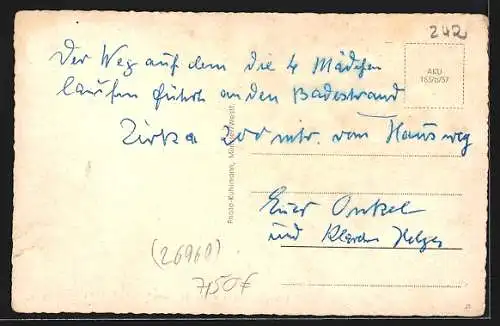 242
Der Weg auf dem die 4 Mädchen
laufen führt an den Badestrand
Zirka 200 mtr. vom Haus weg
AKU
Photo-Kuhlmann, Münster/Westf.
Euer Onkel
und
(26960)
7,50 €